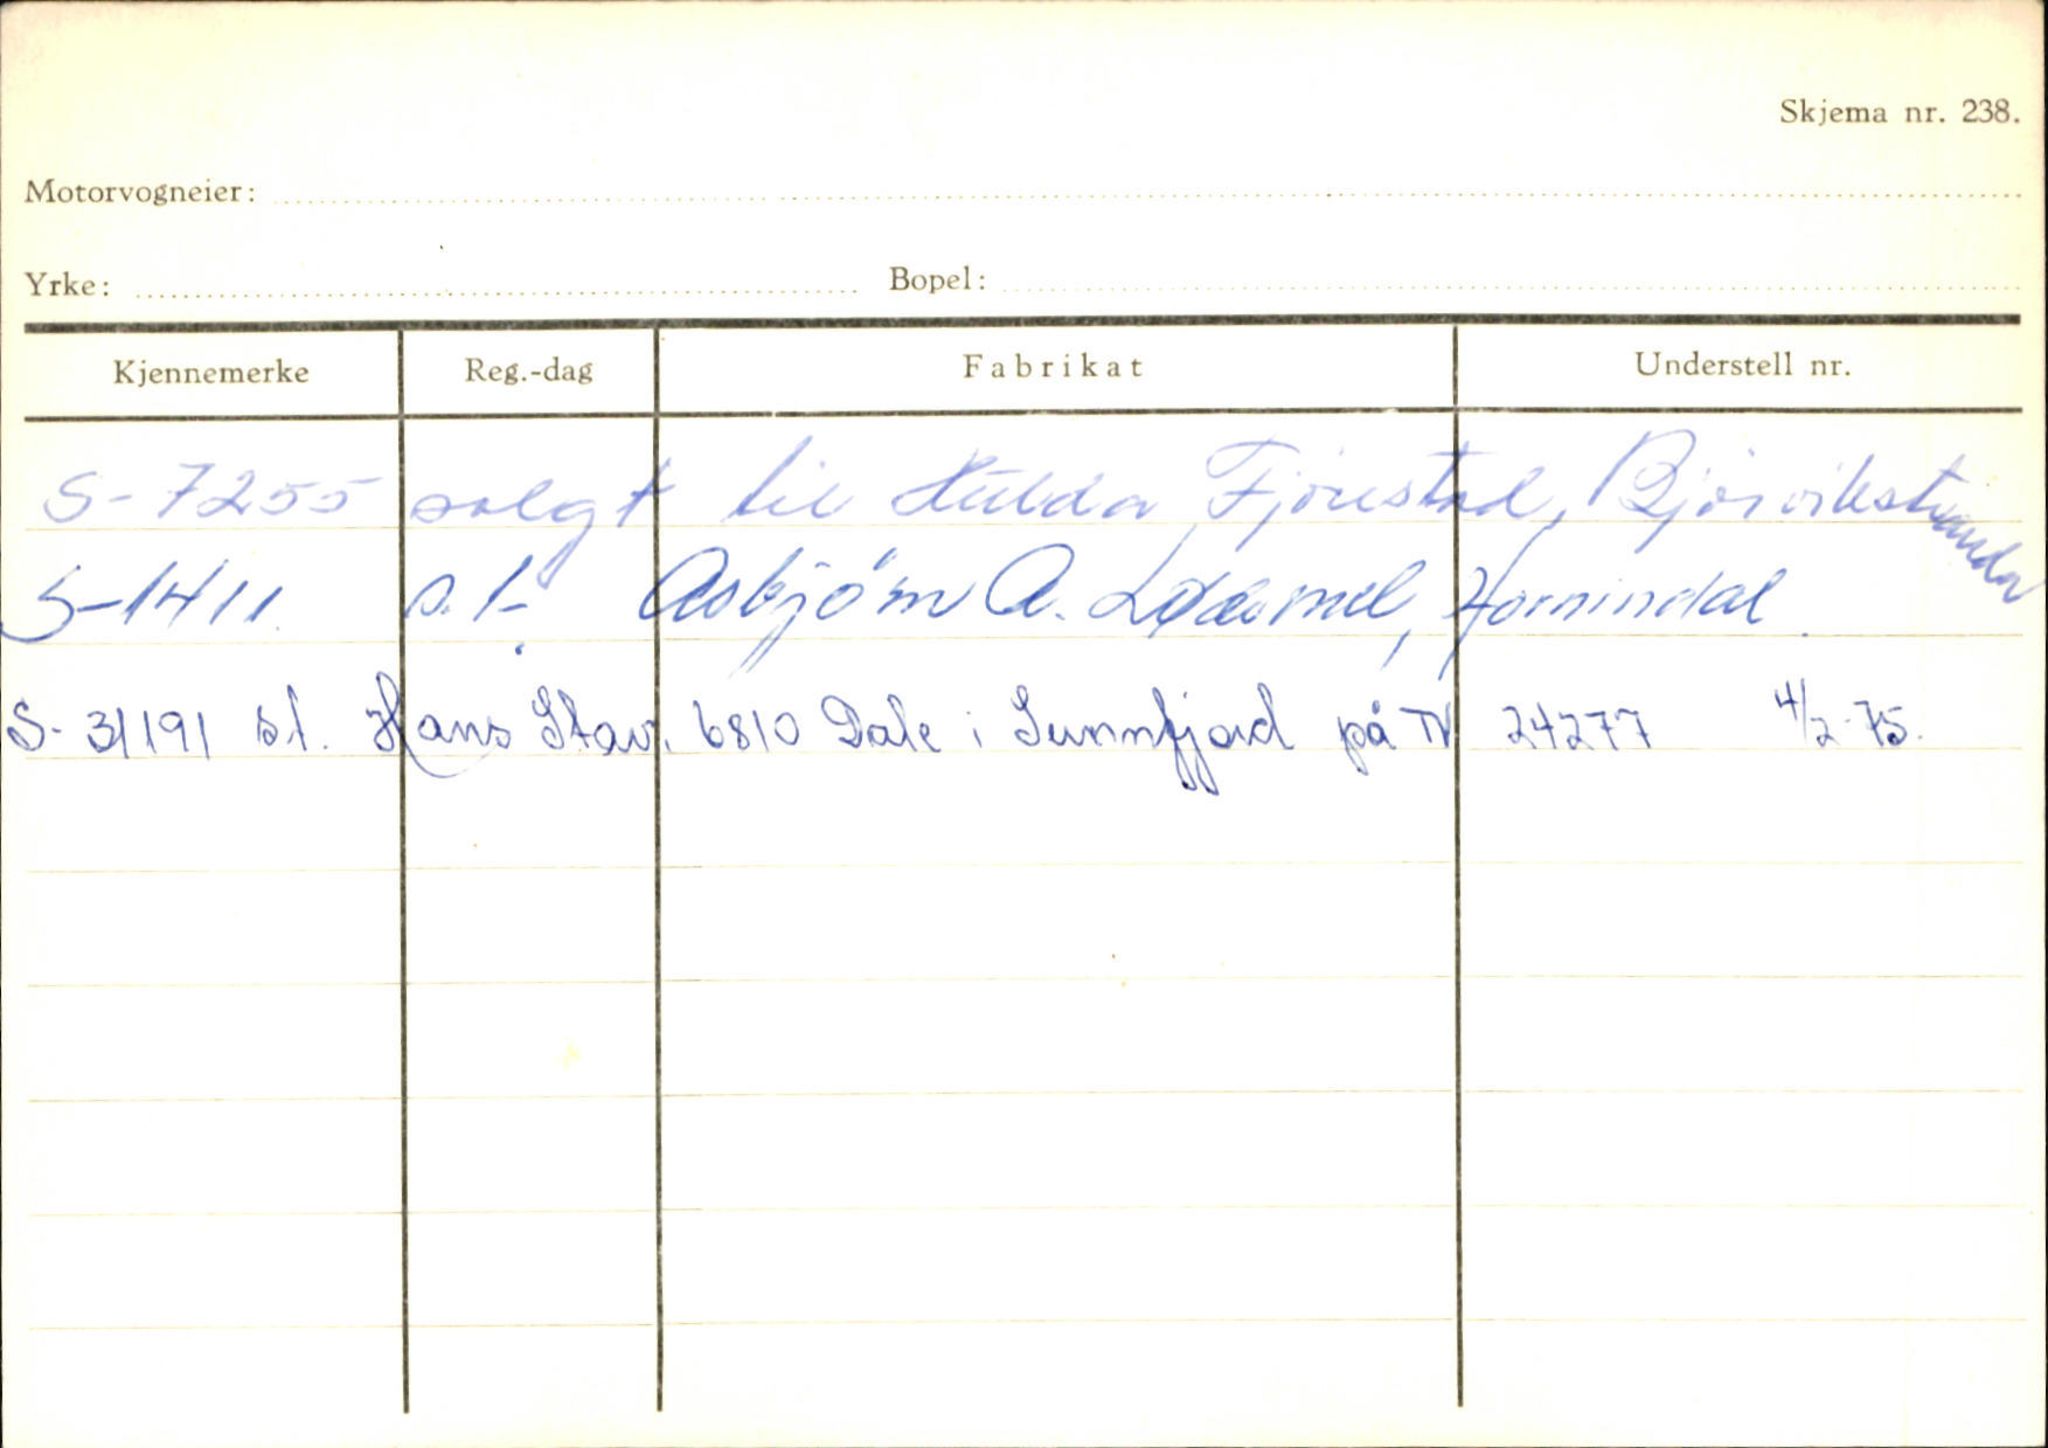 Skjema nr. 238.
Motorvogneier:
Yrke: Bopel:
Kjennemerke Reg.-dag Fabrikat Understell nr.
S-7255 solgt til Hulda Fjørestad, Bjørvikstranda
S-1411. s.t. Asbjørn A. Hornindal.
S-31191 s.t. Hans Stav, 6810 Dale i Sunnfjord på TV 24277 4/2-75.